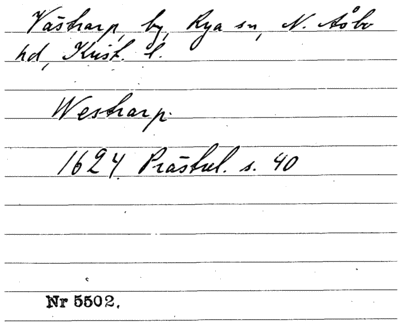 Västrarp, by, Rya sn, N. Åsbo
hd, Krist. l.
Westrarp.
1624 Prästrel. s. 40
Nr 5502.